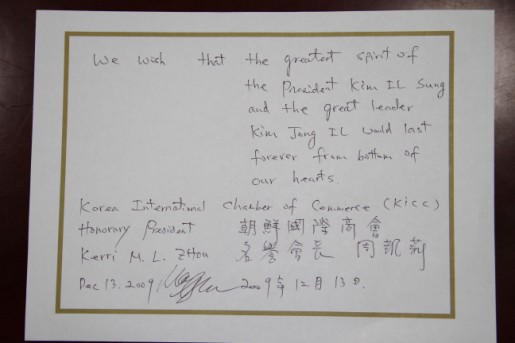 We wish that the greatest spirit of
the President Kim IL Sung
and the great leader
Kim Jong IL would last
forever from bottom of
our hearts.
Korea International Chamber of Commerce (KICC)
Honorary President 朝鮮國際商會
Kerri M. L. Zhou 名誉会长 周凱莉
Dec 13. 2009 2009年12月13日.